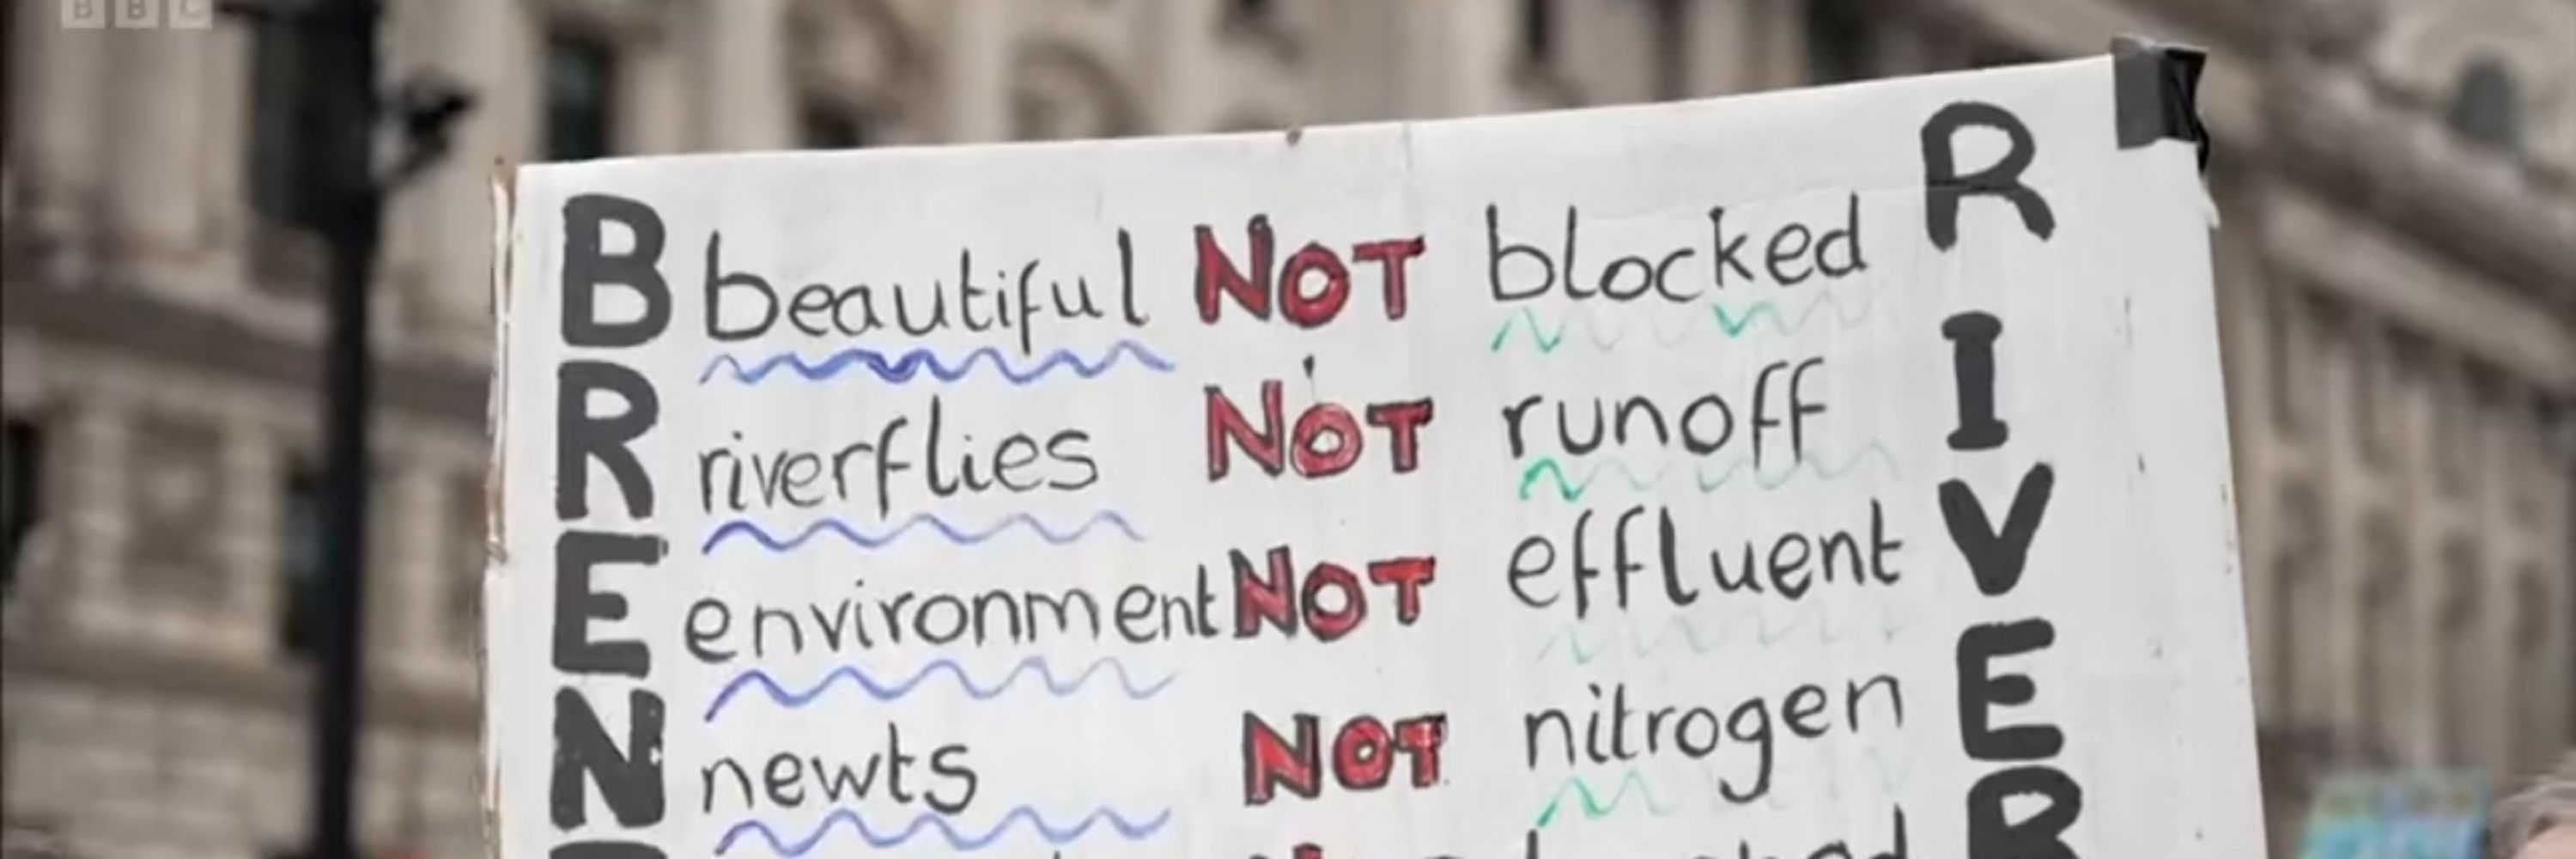 BBC
B beautiful NOT blocked R
R riverflies NOT runoff I
E environment NOT effluent V
N newts NOT nitrogen E
R